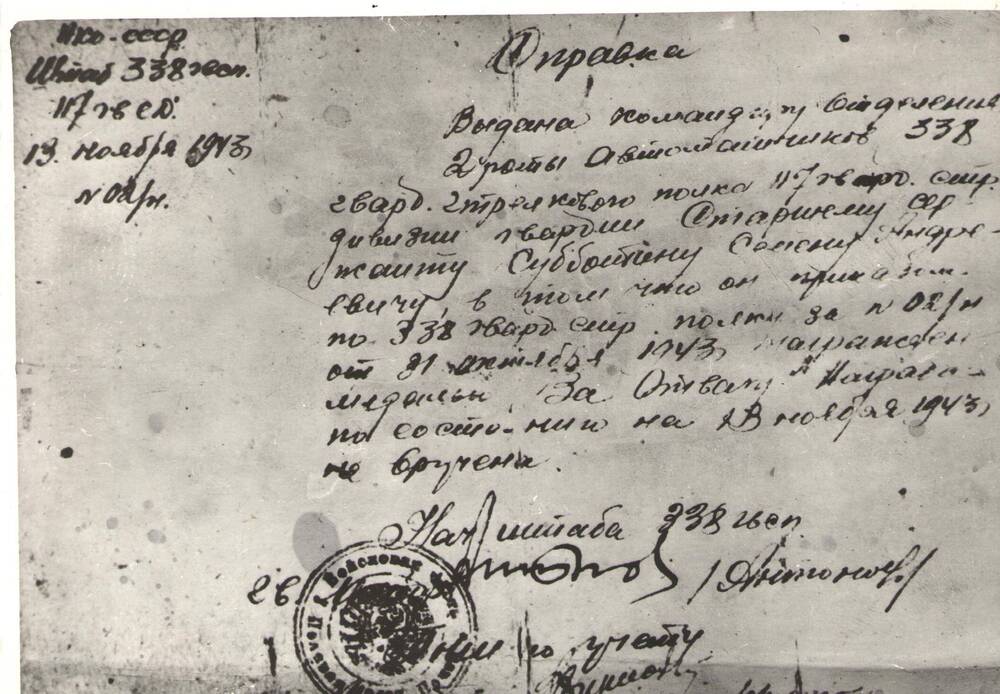 Нко-ссср
Штаб 338 гвсп.
117 гв сд.
13. ноября 1943г
№ 02/н.
Справка
Выдана командиру Отделения
2 роты Автоматчиков 338
гвард. стрелкового полка 117 гвард. стр.
дивизии гвардии Старшему сер
жанту Субботину Семену Андре-
евичу, в том что он приказом
по 338 гвард. стр. полку за № 02/н
от 31 октября 1943г награжден
медалью „За Отвагу" Награда
по состоянию на 13 ноября 1943г
не вручена.
Нач штаба 338 гвсп
гв /Антонов/
Войсковая
по учету